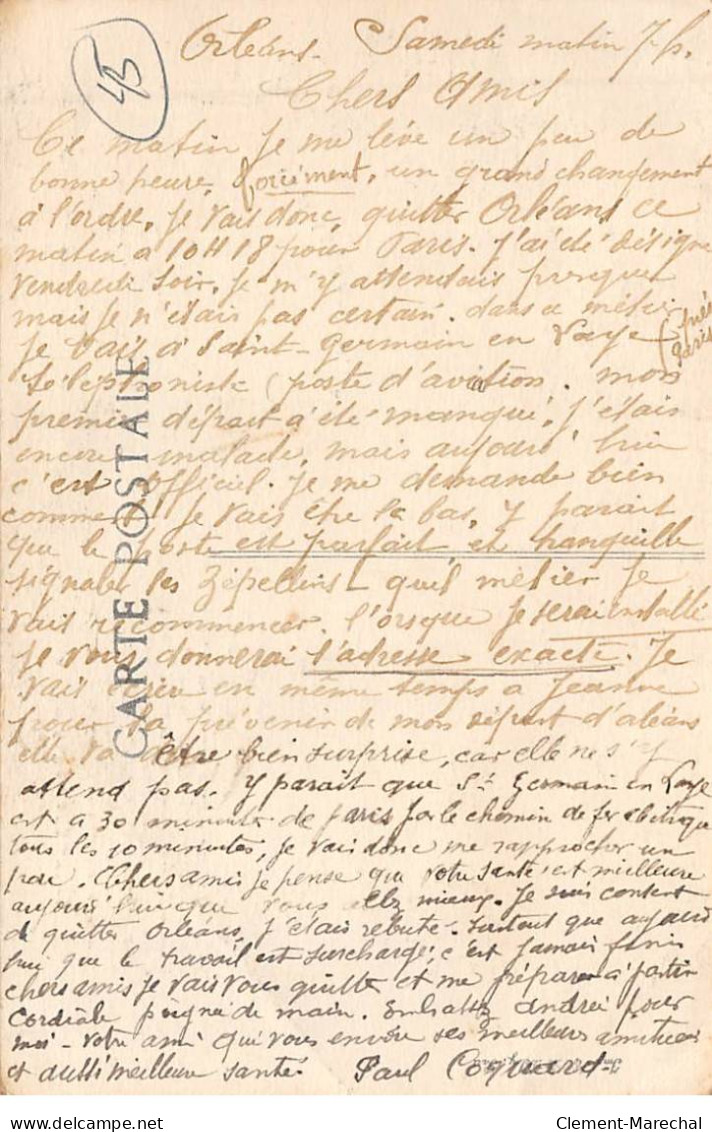 45
Orléans. Samedi matin 7 h.
Chers Amis
Ce matin je me lève un peu de
bonne heure, forcément, un grand changement
à l'ordre, je vais donc, quitter Orléans ce
matin a 10H18 pour Paris. J'ai été désigné
vendredi soir. je m'y attendais presque
mais je n'étais pas certain. dans ce métier
je vais à Saint-Germain en Laye (près Paris)
téléphoniste (poste d'aviation. mon
premier départ a été manqué, j'étais
encore malade, mais aujourd'hui
c'est officiel. Je me demande bien
comment je vais être la bas, y parait
que le poste est parfait et tranquille
signaler les Zépellins - quel métier je
vais recommencer. l'orsque je serai installé
je vous donnerai l'adresse exacte. Je
vais écrire en même temps a Jeanne
pour la prévenir de mon départ d'orléans
elle va être bien surprise, car elle ne s'y
attend pas. Y parait que St Germain en Laye
est a 30 minutes de paris par le chemin de fer
tous les 10 minutes, je vais donc me rapprocher un
peu. Chers amis je pense que votre santé est meilleure
aujourd'hui que vous allez mieux. Je suis content
de quitter Orléans, j'étais rebuté. surtout que aujourd
hui que le travail est surchargé, c'est jamais fini
chers amis je vais vous quitter et me préparer a partir
cordiale poignée de main. Embrassez andrée pour
moi - votre ami qui vous envoie ses meilleures amitiées
et aussi meilleure santé. Paul Coquard
CARTE POSTALE
Clement-Marechal